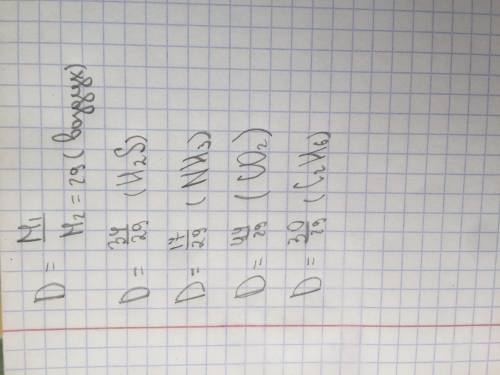 D = M1
M2 = 29 (воздух)
D = 34/29 (H2S)
D = 17/29 (NH3)
D = 44/29 (CO2)
D = 30/29 (C2H6)